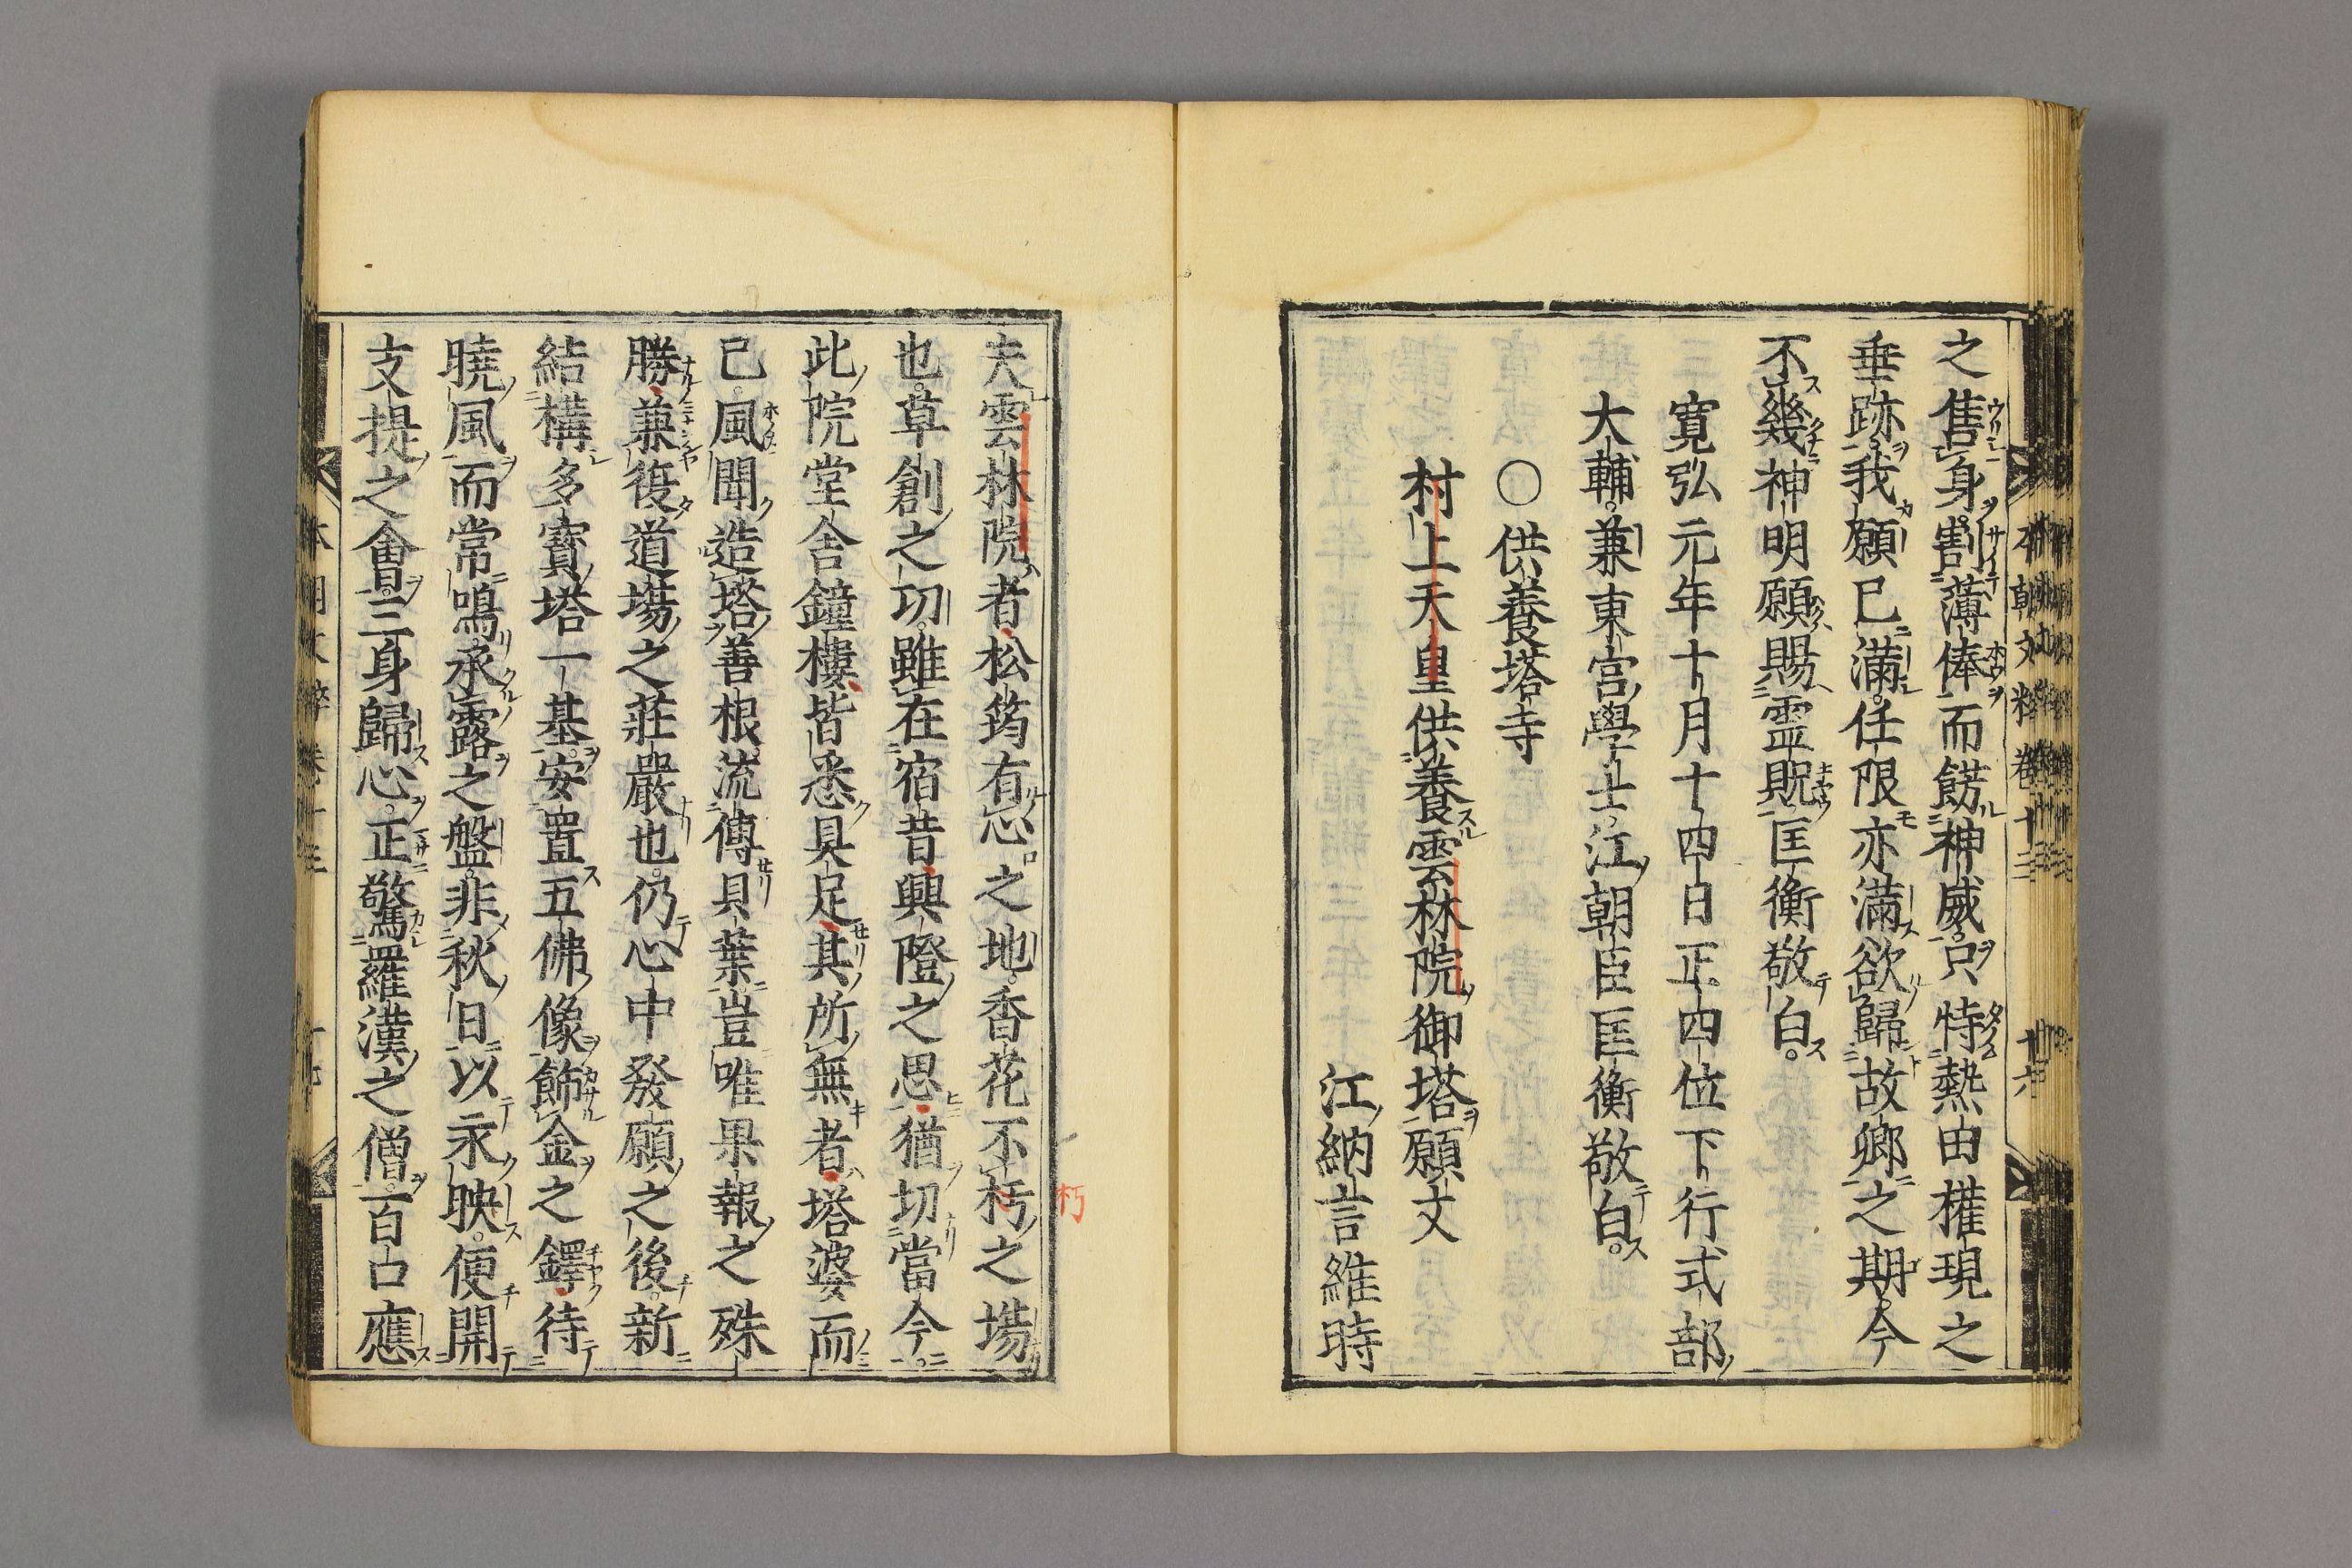 之售身割薄俸而餝神威只恃熱田權現之
垂跡我願已滿任限亦滿欲歸故鄕之期今
不幾神明願賜霊貺匡衡敬白
寛弘元年十月十四日正四位下行式部
大輔兼東宮學士江朝臣匡衡敬白
〇供養塔寺
村上天皇供養雲林院御塔願文
江納言維時
本朝文粹卷十三
廿六
夫雲林院者松筠有心之地香花不朽之塲
朽
也草創之切雖在宿昔興隆之思猶切當今
此院堂舎鐘樓皆悉具足其所無者塔婆而
已風聞造塔善根流傳貝葉豈唯果報之殊
勝兼復道塲之莊嚴也仍心中發願之後新
結構多寳塔一基安置五佛像飾金之鐸待
曉風而常鳴承露之盤非秋日以永映便開
支提之會三身歸心正驚羅漢之僧百口應